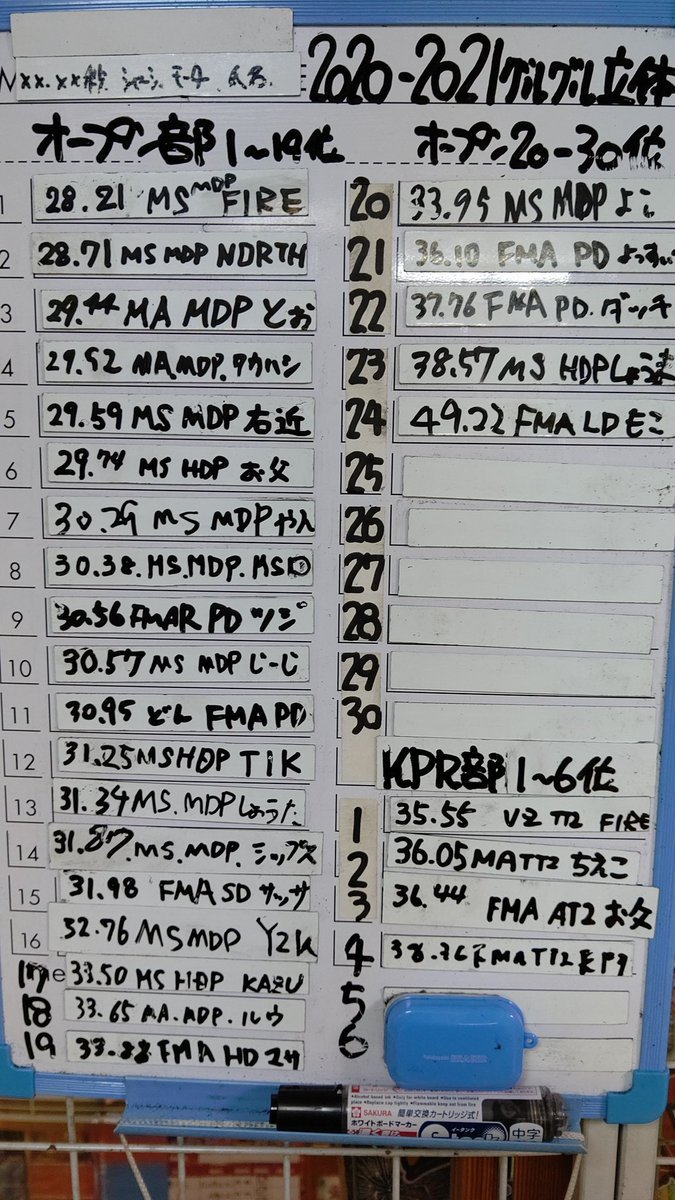 xx.xx秒 シャーシ モーター 氏名
2020-2021グルグル立体
オープン部1~19位
1 28.21 MS MDP FIRE
2 28.71 MS MDP NORTH
3 29.44 MA MDP とお
4 29.52 MA MDP.タカハシ
5 29.59 MS MDP 右近
6 29.74 MS HDP お父
7 30.29 MS MDP
8 30.38.MS.MDP.MSD
9 30.56 FMAR PD ツジ
10 30.57 MS MDP じーじ
11 30.95 どん FMA PD
12 31.25 MS HDP TIK
13 31.34 MS.MDP しょうた
14 31.87.MS.MDP.シップス
15 31.98 FMA SD サッサ
16 32.76 MS MDP Y2K
17 33.50 MS HDP KAZU
18 33.65 MA.MDP.ルウ
19 33.88 FMA HD
オープン20-30位
20 33.95 MS MDP よこ
21 36.10 FMA PD よっすぃ
22 37.76 FMA PD.ダッチ
23 38.57 MS HDP しょうま
24 49.22 FMA LD もこ
25
26
27
28
29
30
KPR部1~6位
1 35.55 VZ TT2 FIRE
2 36.05 MA TT2 ちえこ
3 36.44 FMA AT2 お父
4 38.76 FMA TT2
5
6
SAKURA
簡単交換カートリッジ式!
ホワイトボードマーカー
イータンク
中字